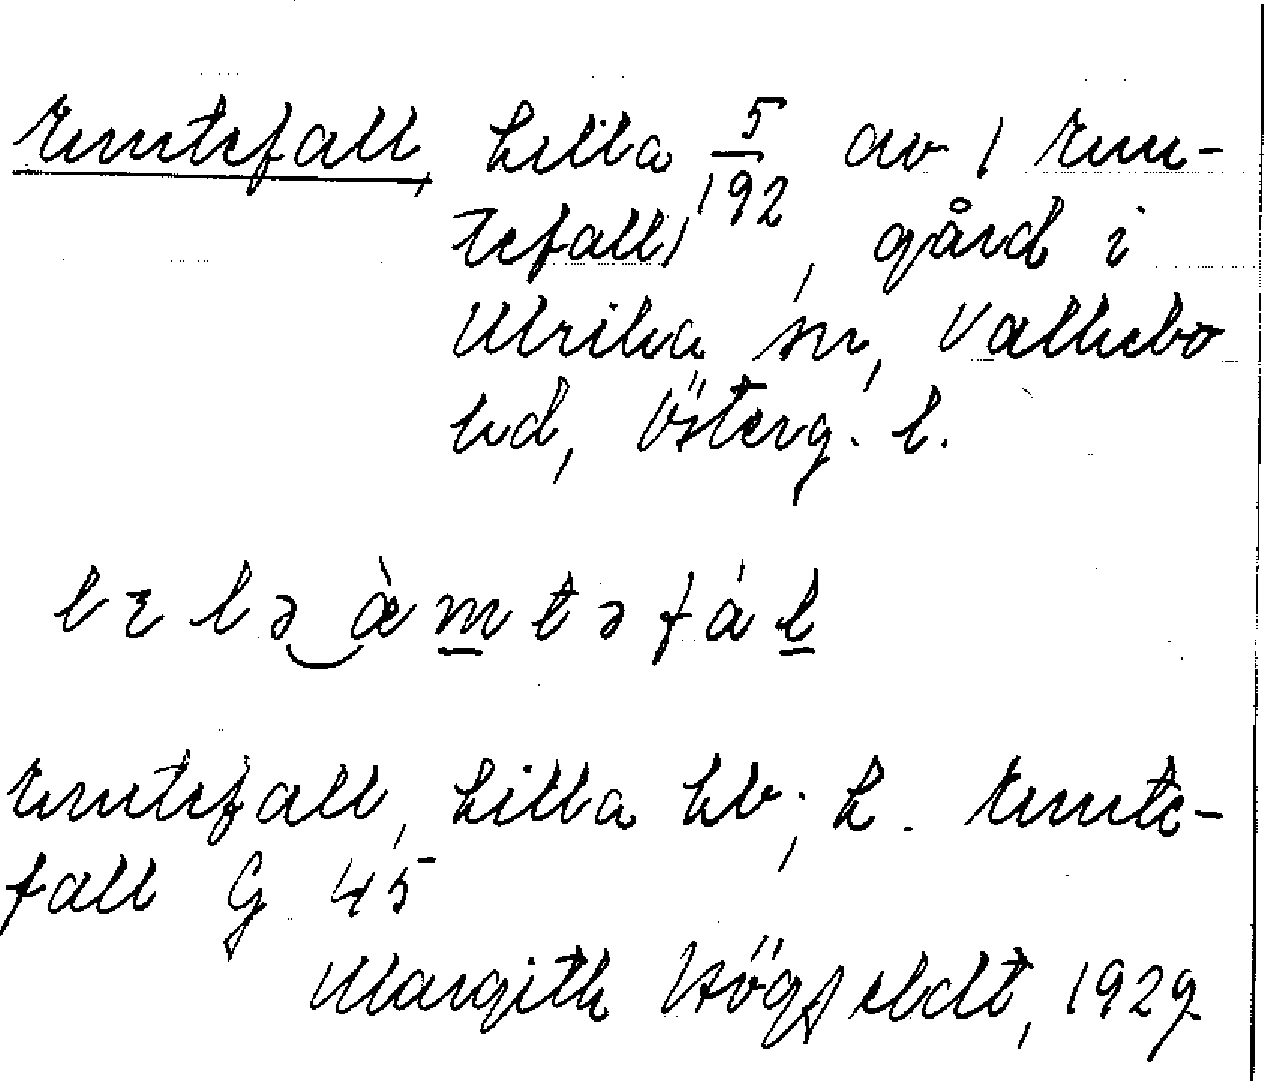 Emtefall, Lilla 5/192 av 1 Em-
tefall), gård i
Ulrika sn, Valkebo
hd, Österg. l.
lɪlə‿æ̀mtəfál
Emtefall, Lilla kb; L. Emte-
fall G 45
Margith Högfeldt, 1929